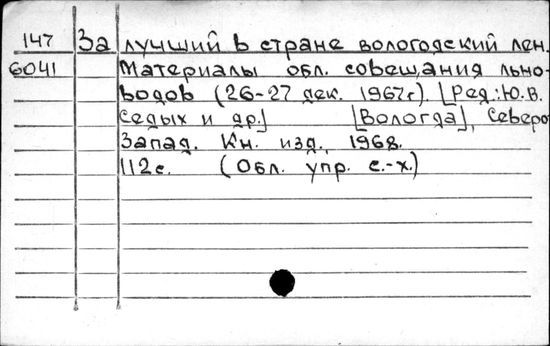 147 За лучший в стране вологодский лен.
6041 Материалы обл. совещания льно-
водов (26-27 дек. 1967г). [Ред.: Ю.В.
Седых и др.] [Вологда], Северо-
Запад. Кн. изд., 1968.
112с. (Обл. упр. с.-х.)